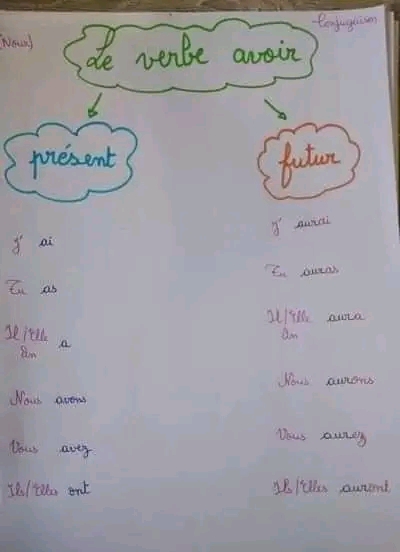 (Nour)
Conjugaison
Le verbe avoir
présent
futur
J' ai
Tu as
Il/Elle a
On
Nous avons
Vous avez
Ils/Elles ont
J' aurai
Tu auras
Il/Elle aura
On
Nous aurons
Vous aurez
Ils/Elles auront